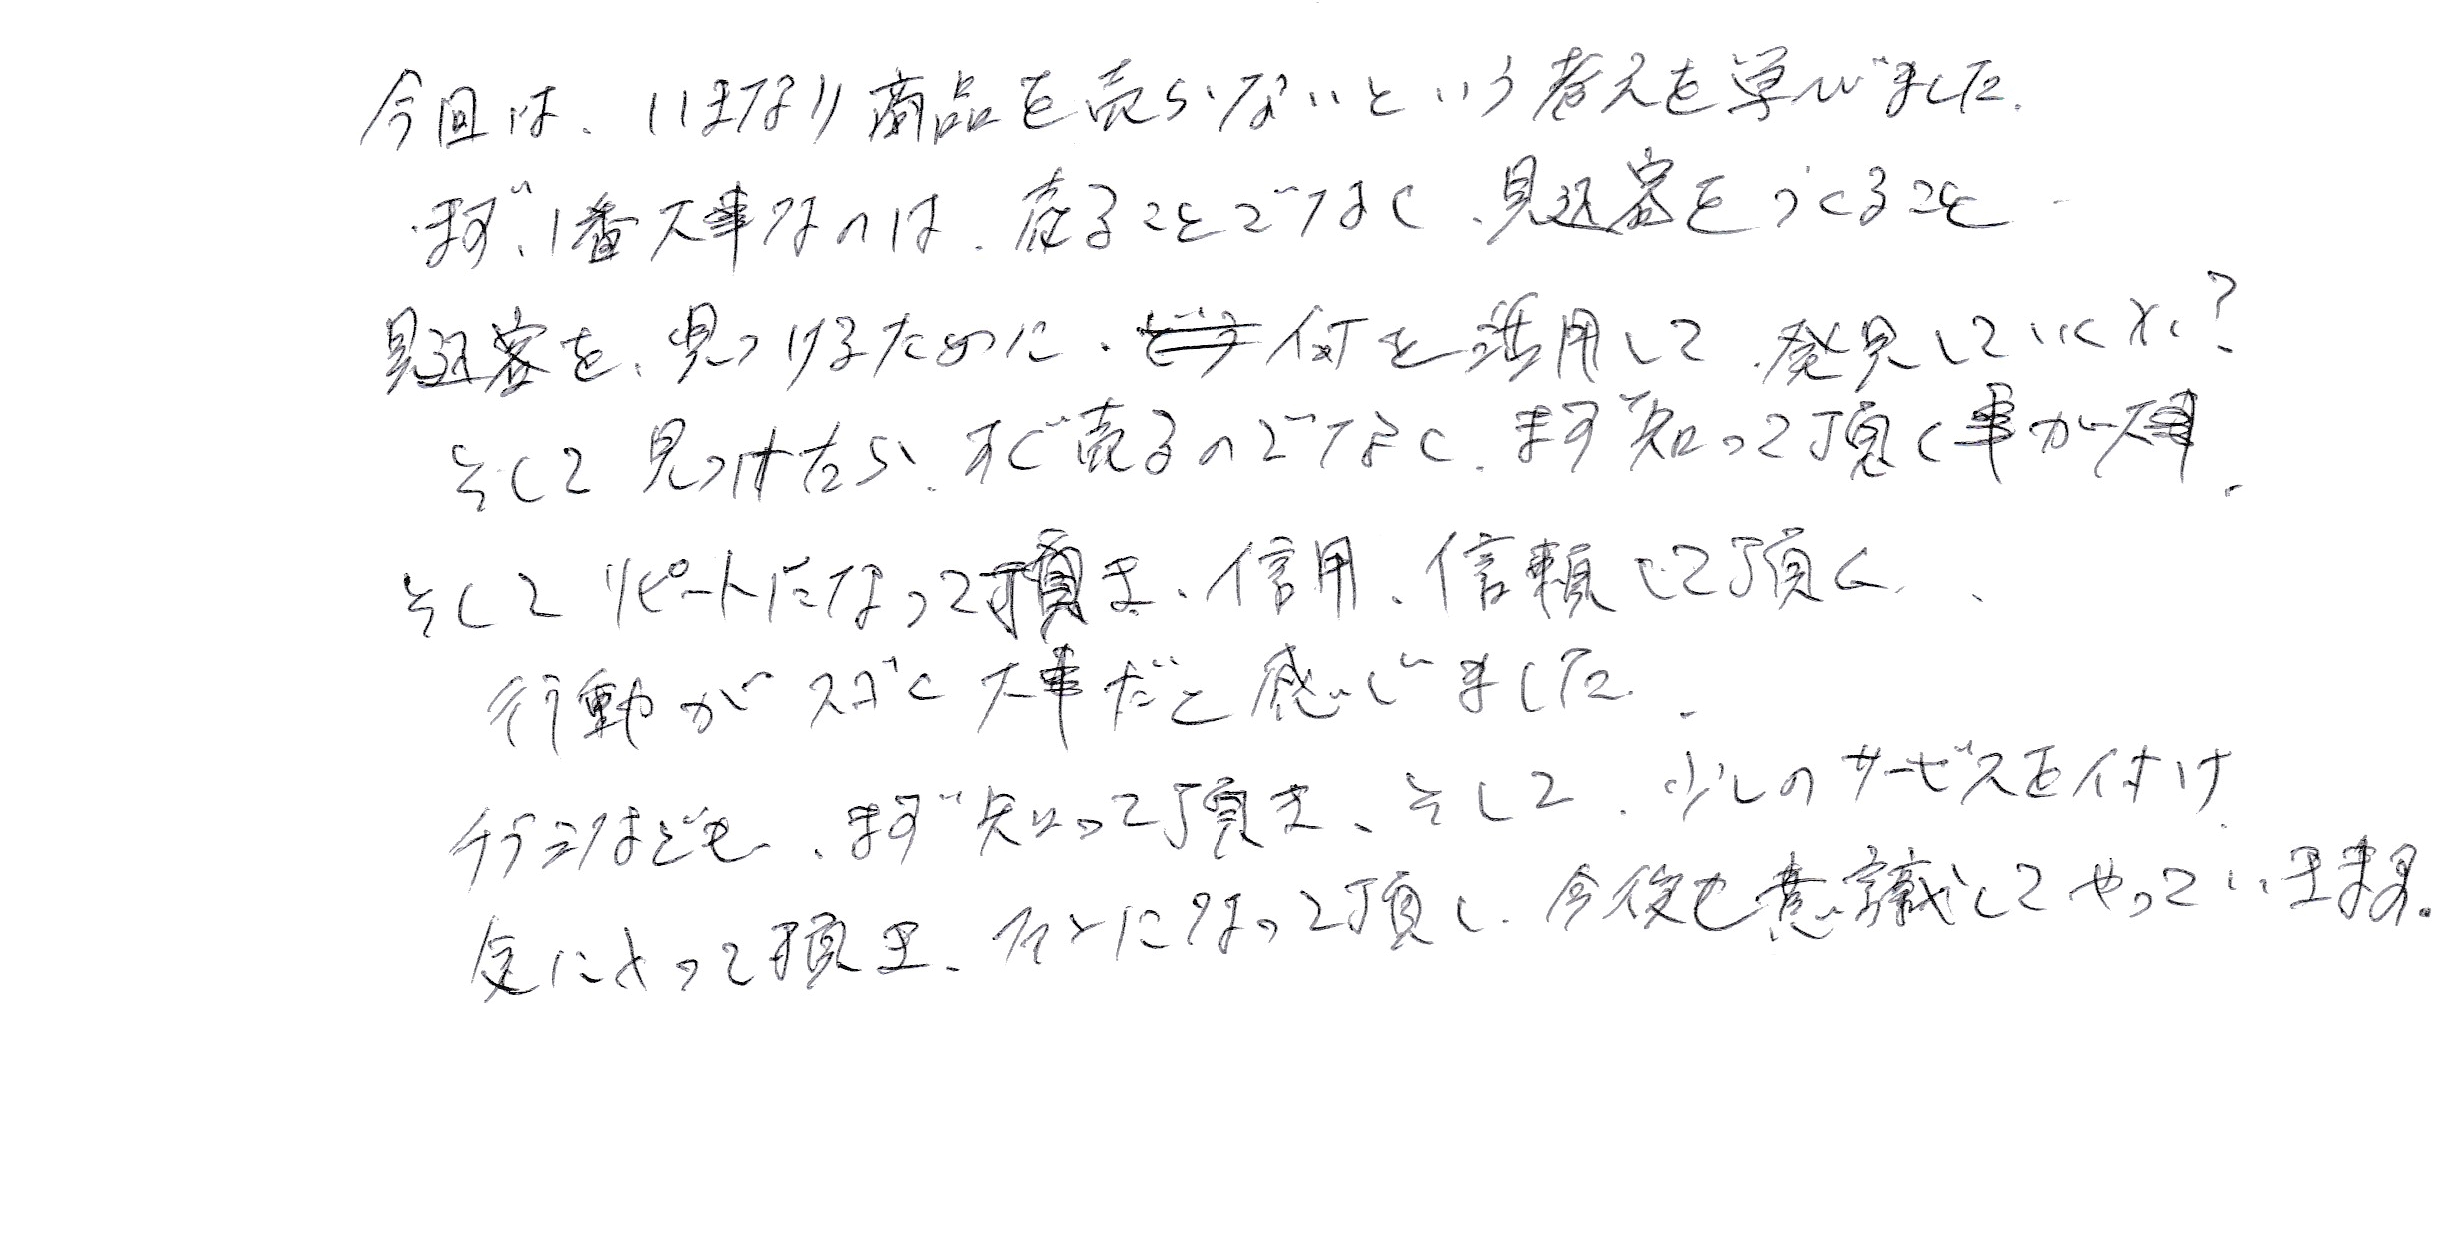 今回は、いきなり商品を売らないという考えを学びました。
まず、1番大事なのは、売ることでなく、見込客をつくること
見込客を、見つけるために、何を活用して、発見していくか?
そして見つけたら、すぐ売るのでなく、まず知って頂く事が大事。
そしてリピートになって頂き、信用、信頼して頂く、
行動がスゴく大事だと感じました。
チラシなども、まず知って頂き、そして、少しのサービスを付け
気に入って頂き、になって頂く、今後も意識してやっていきます。